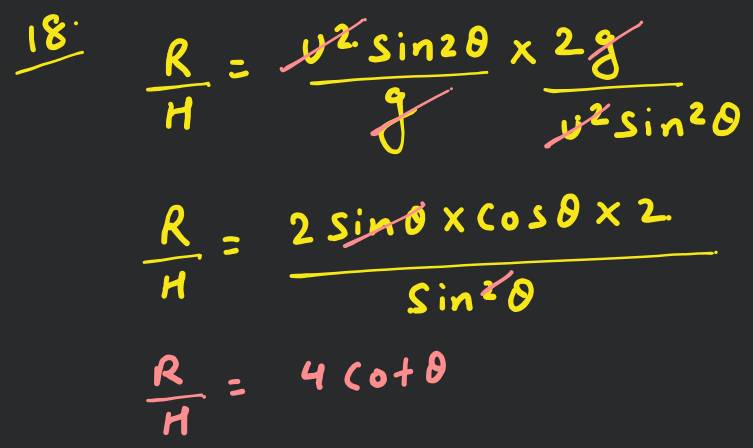 18. R/H = u² sin2θ/g × 2g/u² sin²θ
R/H = 2 sinθ × cosθ × 2/sin²θ
R/H = 4 cotθ